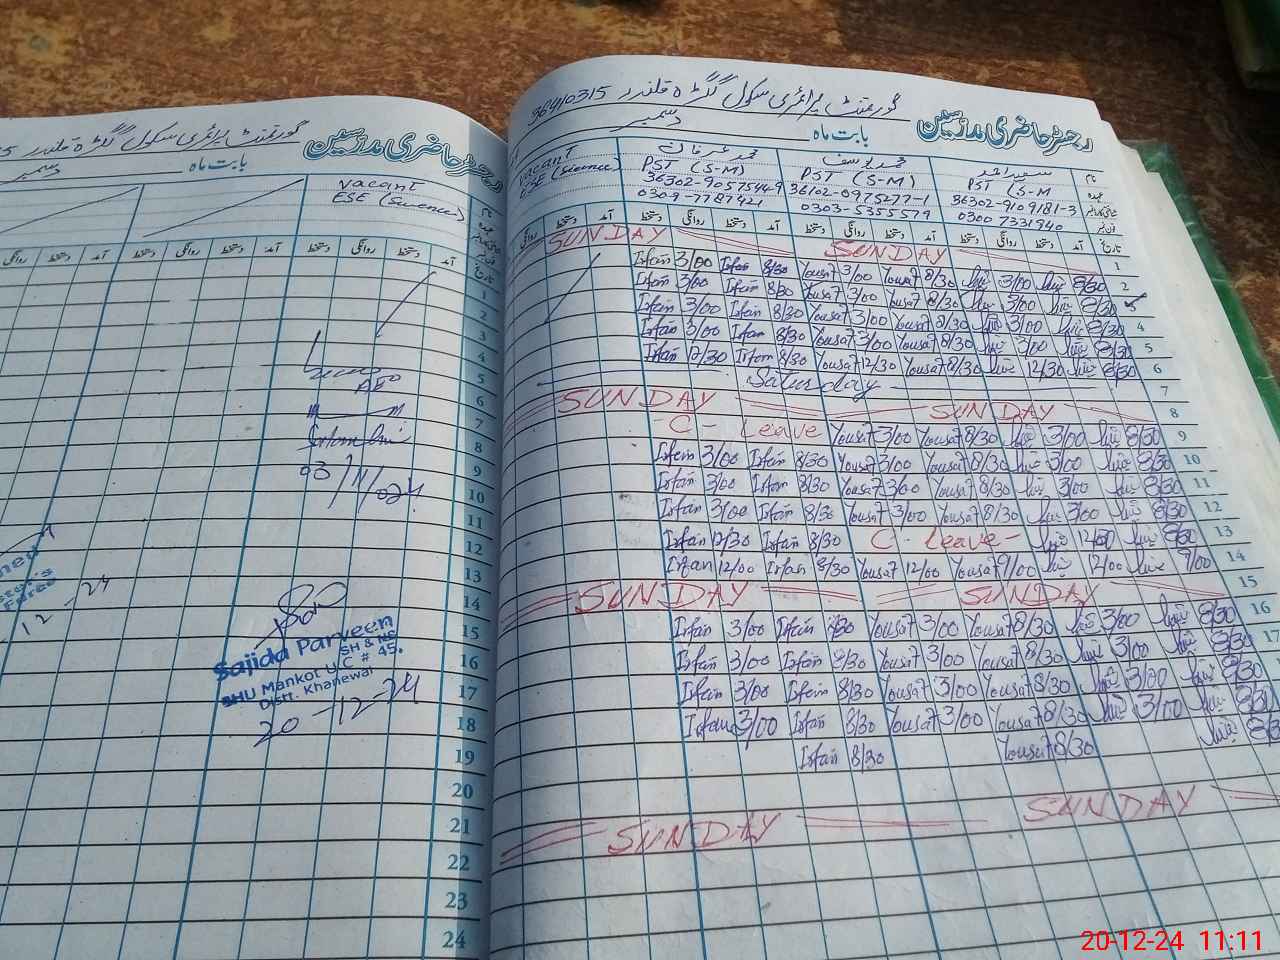 رجسٹر حاضری مدرسین
گورنمنٹ پرائمری سکول گگڑہ قلندر
بابت ماہ
دسمبر
vacant
ESE (Science)
آمد دستخط روانگی دستخط آمد دستخط روانگی
1
2
3
4
5
6
7
8
9
10
11
12
13
14
15
16
17
18
19
20
21
22
23
24
AEO
03/11/024
Sajida Parveen
SH & NS
BHU Mankot U/C # 45.
Distt. Khanewal
20-12-24
رجسٹر حاضری مدرسین
گورنمنٹ پرائمری سکول گگڑہ قلندر 36410315
بابت ماہ
دسمبر
نام سعید احمد محمد یوسف محمد عرفان vacant
PST (S-M PST (S-M) PST (S-M) ESE (Science)
36302-9109181-3 36102-0975277-1 36302-9057544-9
0300 7331940 0303-5355579 0309-7787421
تاریخ آمد دستخط روانگی دستخط آمد دستخط روانگی دستخط آمد دستخط روانگی دستخط آمد
SUNDAY SUNDAY 1
Irfan 3/00 Irfan 8/30 Yousaf 3/00 Yousaf 8/30 3/00 8/30 2
Irfan 3/00 Irfan 8/30 Yousaf 3/00 Yousaf 8/30 3/00 8/30
Irfan 3/00 Irfan 8/30 Yousaf 3/00 Yousaf 8/30 3/00 8/30 4
Irfan 3/00 Irfan 8/30 Yousaf 3/00 Yousaf 8/30 3/00 8/30 5
Irfan 12/30 Irfan 8/30 Yousaf 12/30 Yousaf 8/30 12/30 8/30 6
Saturday 7
SUNDAY SUNDAY 8
C - Leave Yousaf 3/00 Yousaf 8/30 3/00 8/30 9
Irfan 3/00 Irfan 8/30 Yousaf 3/00 Yousaf 8/30 3/00 8/30 10
Irfan 3/00 Irfan 8/30 Yousaf 3/00 Yousaf 8/30 3/00 8/30 11
Irfan 3/00 Irfan 8/30 Yousaf 3/00 Yousaf 8/30 3/00 8/30 12
Irfan 12/30 Irfan 8/30 C - Leave - 8/30 13
Irfan 12/00 Irfan 8/30 Yousaf 12/00 Yousaf 9/00 12/00 9/00 14
SUNDAY SUNDAY 15
Irfan 3/00 Irfan 8/30 Yousaf 3/00 Yousaf 8/30 3/00 8/30 16
Irfan 3/00 Irfan 8/30 Yousaf 3/00 Yousaf 8/30 3/00 8/30 17
Irfan 3/00 Irfan 8/30 Yousaf 3/00 Yousaf 8/30 3/00 8/30
Irfan 3/00 Irfan 8/30 Yousaf 3/00 Yousaf 8/30 3/00 8/30
Irfan 8/30 Yousaf 8/30
SUNDAY SUNDAY
20-12-24 11:11